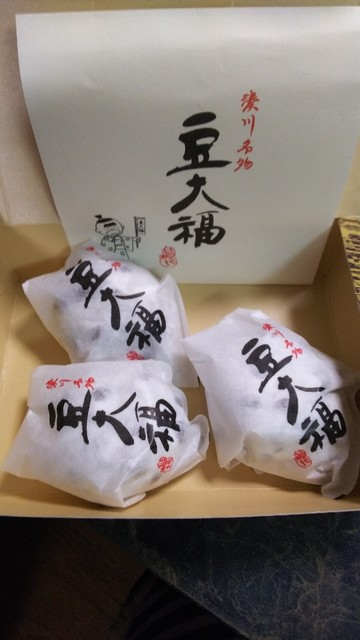 湊川名物
豆大福
豆大福
湊川名物
豆大福
湊川名物
豆大福